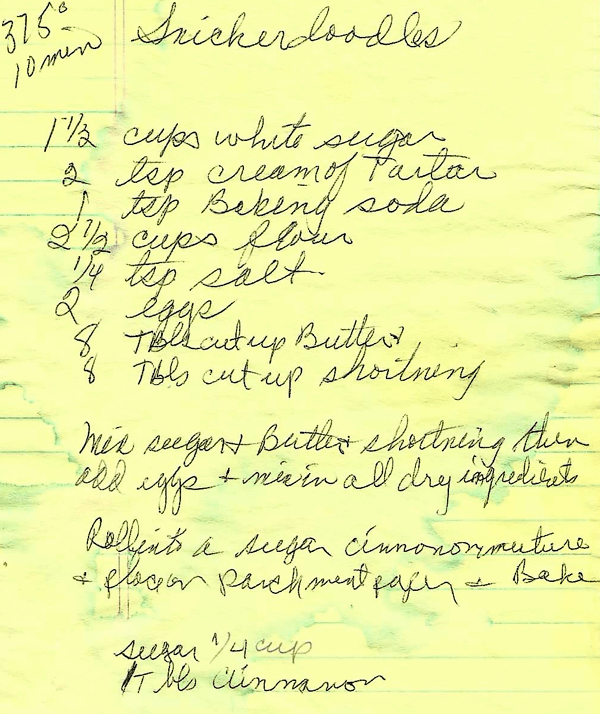 375°
10 min
Snickerdoodles
1 1/2 cups white sugar
2 tsp cream of Tartar
1 tsp Baking soda
2 1/2 cups flour
1/4 tsp salt
2 eggs
8 Tbls cut up Butter
8 Tbls cut up shortning
Mix sugar + Butter + shortning then
add eggs + mix in all dry ingredients
Roll into a sugar cinnonon mixture
+ place on parchment paper + Bake
sugar 1/4 cup
1 Tbls Cinnamon